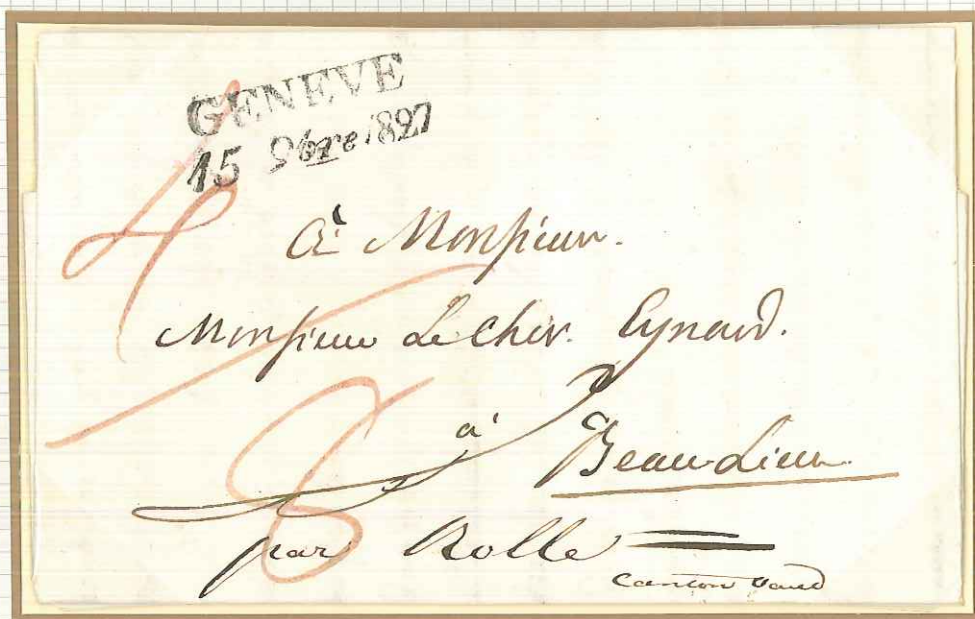 GENEVE
15 9bre 1827
à Monsieur.
Monsieur Le Chev. Eynard.
à Beau-Lieu
par Rolle
Canton Vaud